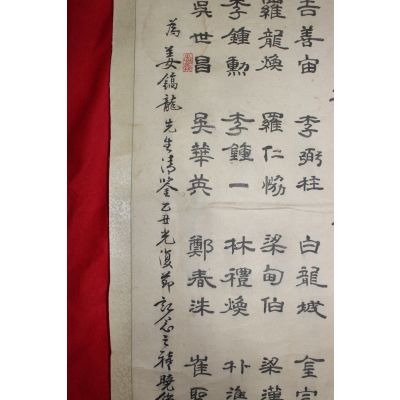 吉善宙 李弼柱 白龍城 金完
羅龍煥 羅仁恊 梁甸伯 梁漢
李鍾勳 李鍾一 林禮煥 朴準
吳世昌 吳華英 鄭春洙 崔聖
為姜鎬龍先生清鑒乙丑光復節記念之禧曉